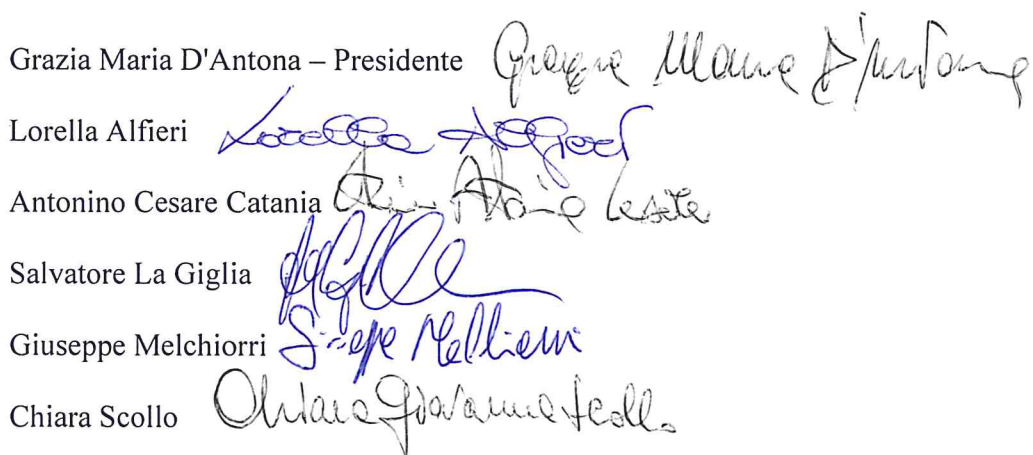 Grazia Maria D'Antona – Presidente Grazia Maria D'Antona
Lorella Alfieri Lorella Alfieri
Antonino Cesare Catania
Salvatore La Giglia
Giuseppe Melchiorri Giuseppe Melchiorri
Chiara Scollo Chiara Giovanna Scollo